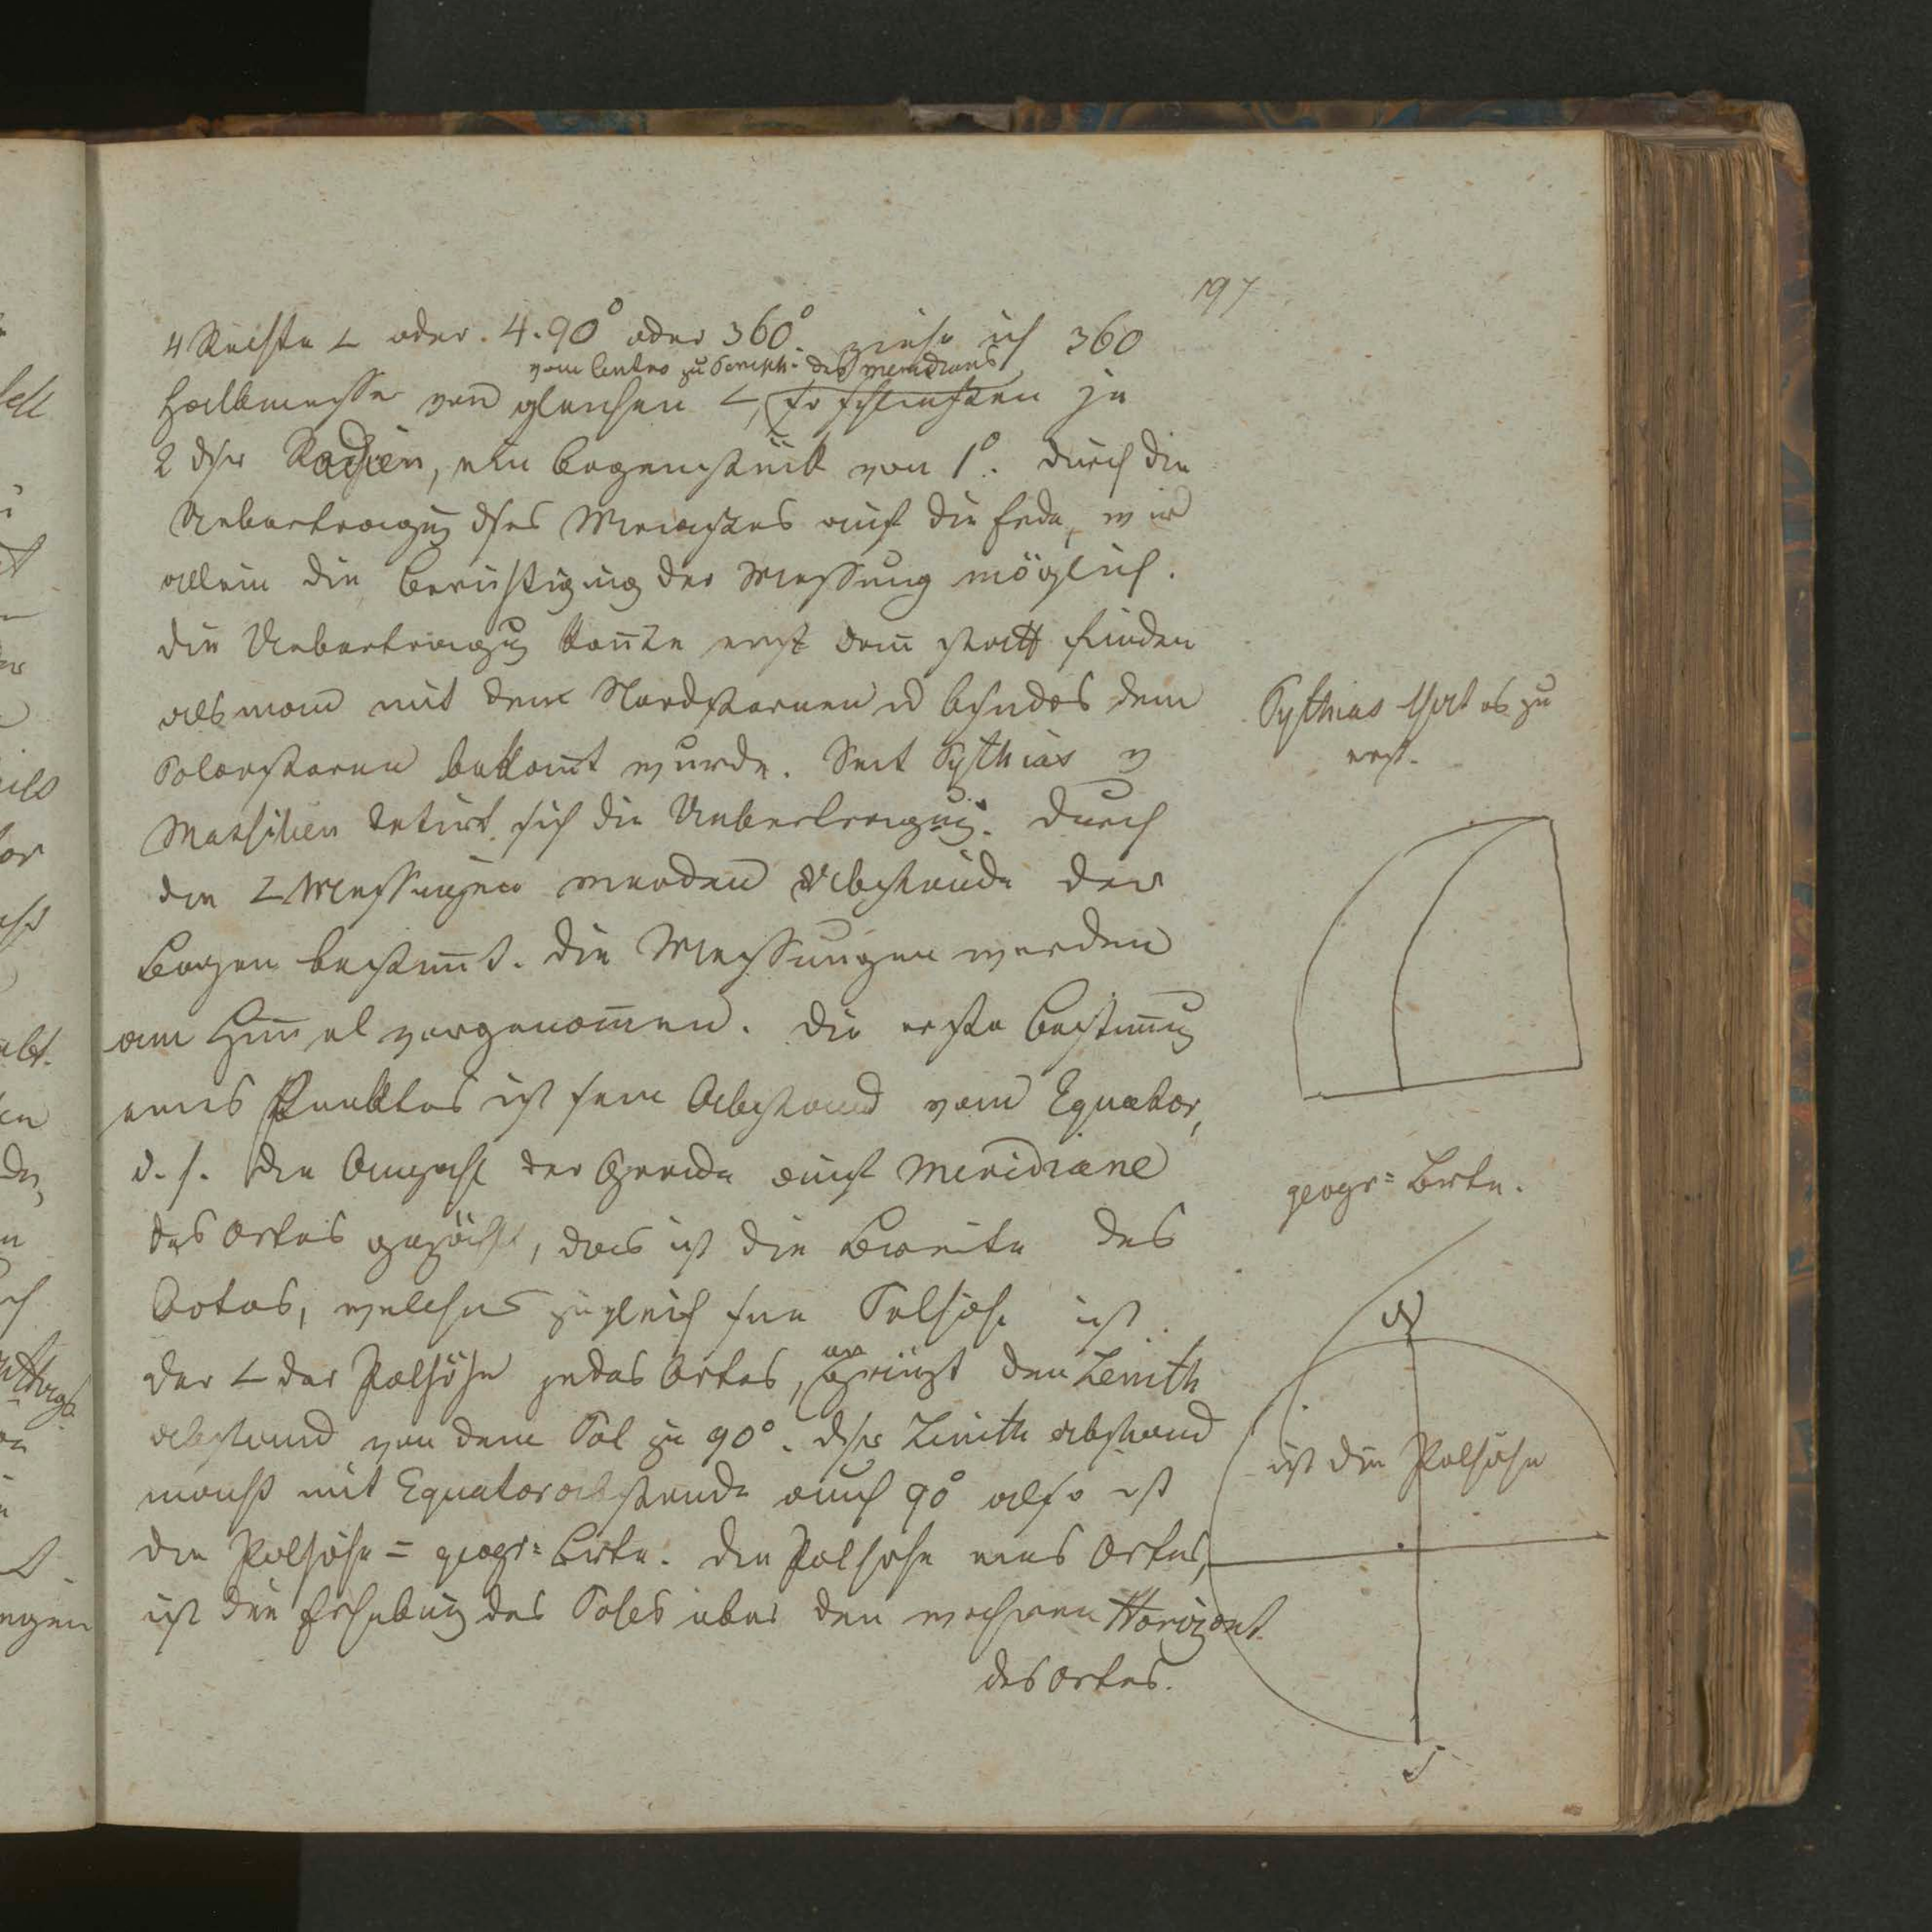 197
4 Rechte ∠ oder. 4.90° oder 360°. ziehe ich 360
vom Centro zu Periph: des Meridians
Halbmesser von gleichen ∠, so schließen je
2 dser Radien, ein Bogenstück von 1°. Durch die
Uebertragug dses Maaßes auf die Erde, wird
allein die Berichtigung der Messung möglich.
die Uebertragug kon̄te erst dan̄ statt finden
als man mit dem Nordsternen u bsnders dem
Polarsterne bekan̄t wurde. Seit Pythias v
Massilien datirt sich die Uebertragug. Durch
die ∠Messungen werden Abstände der
Bogen bestim̄t. die Messungen werden
am Him̄el vorgenom̄en. die erste Bestim̄ug
eines Punktes ist sein Abstand vom Equator,
d. h. die Anzahl der Grade auf Meridiane
des Ortes gezählt, das ist die Breite des
Ortes, welches zugleich seine Polhöhe ist.
der ∠ der Polhöhe jedes Ortes, ergänzt den Zenith
abstand von dem Pol zu 90°. dser Zenith abstand
macht mit Equatorabstande auch 90° also ist
die Polhöhe = geogr: Brte. die Polhöhe eines Ortes,
ist die Erhebung des Poles über den wahren Horizont
des Ortes.
Pythias that es zu
erst.
geogr: Brte.
N
ist die Polhöhe
S